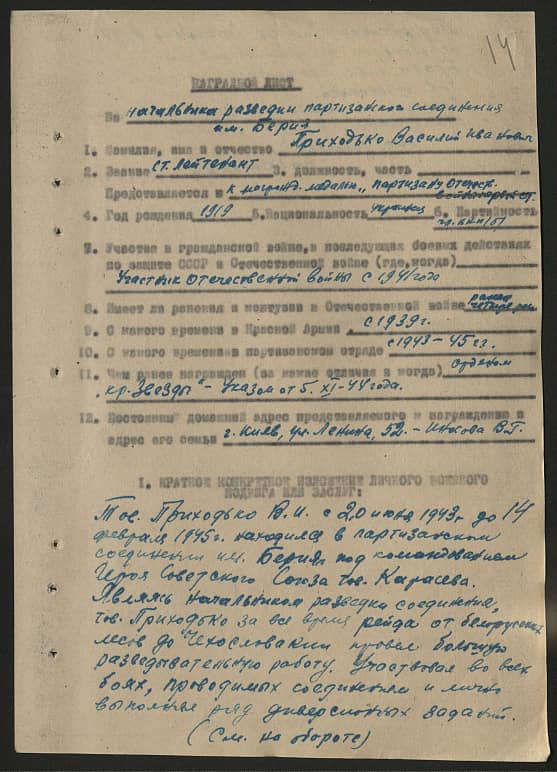 14
НАГРАДНОЙ ЛИСТ
На начальника разведки партизанского соединения
им. Берия
1. Фамилия, имя и отчество Приходько Василий Иванович
2. Звание ст. лейтенант 3. должность, часть
Представляется к награжд. медалью „партизану Отечеств.
войны
4. Год рождения 1919 5. Национальность украинец 6. Партийность
чл. вкп/б/
7. Участие в гражданской войне, в последующих боевых действиях
по защите СССР и Отечественной войне (где, когда)
Участник Отечественной войны с 1941 года
8. Имеет ли ранения и контузии в Отечественной войне ранен
четыре раза
9. С какого времени в Красной Армии с 1939 г.
10. С какого времени в партизанском отряде с 1943 – 45 гг.
11. Чем ранее награжден (за какие отличия и когда) орденом
„кр. Звезды" – Указом от 5. XI – 44 года.
12. Постоянный домашний адрес представляемого к награждению и
адрес его семьи г. Киев, ул. Ленина, 52. –
I. КРАТКОЕ КОНКРЕТНОЕ ИЗЛОЖЕНИЕ ЛИЧНОГО БОЕВОГО
ПОДВИГА ИЛИ ЗАСЛУГ:
Тов. Приходько В. И. с 20 июня 1943 г до 14
февраля 1945 г. находился в партизанском
соединении им. Берия под командованием
Героя Советского Союза тов. Карасева.
Являясь начальником разведки соединения,
тов. Приходько за все время рейда от белорусских
лесов до Чехословакии провел большую
разведывательную работу. Участвовал во всех
боях, проводимых соединением и лично
выполнял ряд диверсионных заданий.
(См. на обороте)